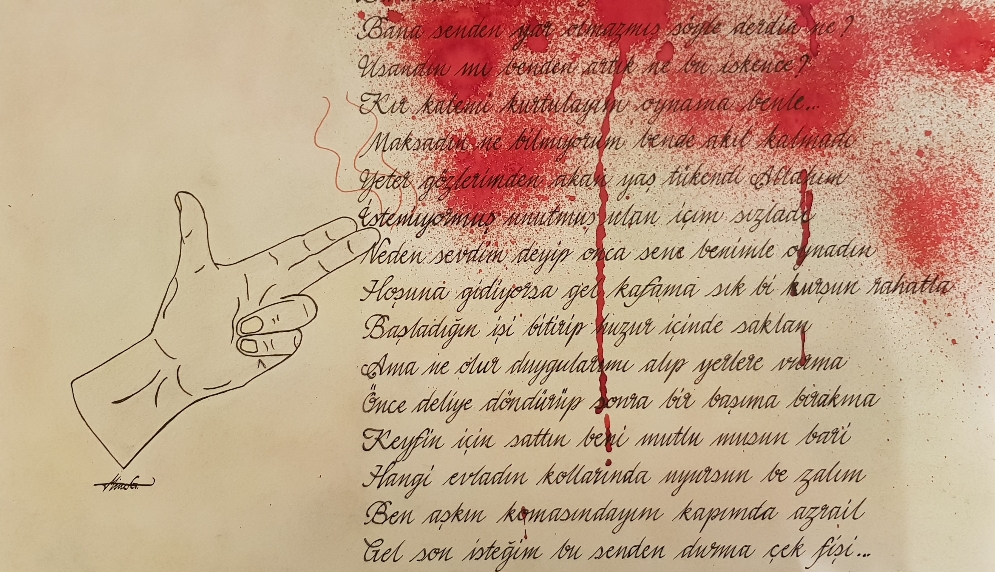 Bana senden yar olmazmış söyle derdin ne?
Usandın mı benden artık ne bu işkence?
Kır kalemi kurtulayım oynama benle...
Maksadın ne bilmiyorum bende akıl kalmadı
Yeter gözlerimden akan yaş tükendi Allahım
İstemiyormuş unutmuş ulan içim sızladı
Neden sevdim deyip onca sene benimle oynadın
Hoşuna gidiyorsa gel kafama sık bi kurşun rahatla
Başladığın işi bitirip huzur içinde saklan
Ama ne olur duygularımı alıp yerlere vurma
Önce deliye döndürüp sonra bir başıma bırakma
Keyfin için sattın beni mutlu musun bari
Hangi evladın kollarında uyursun be zalım
Ben aşkın komasındayım kapımda azrail
Gel son isteğim bu senden durma çek fişi...